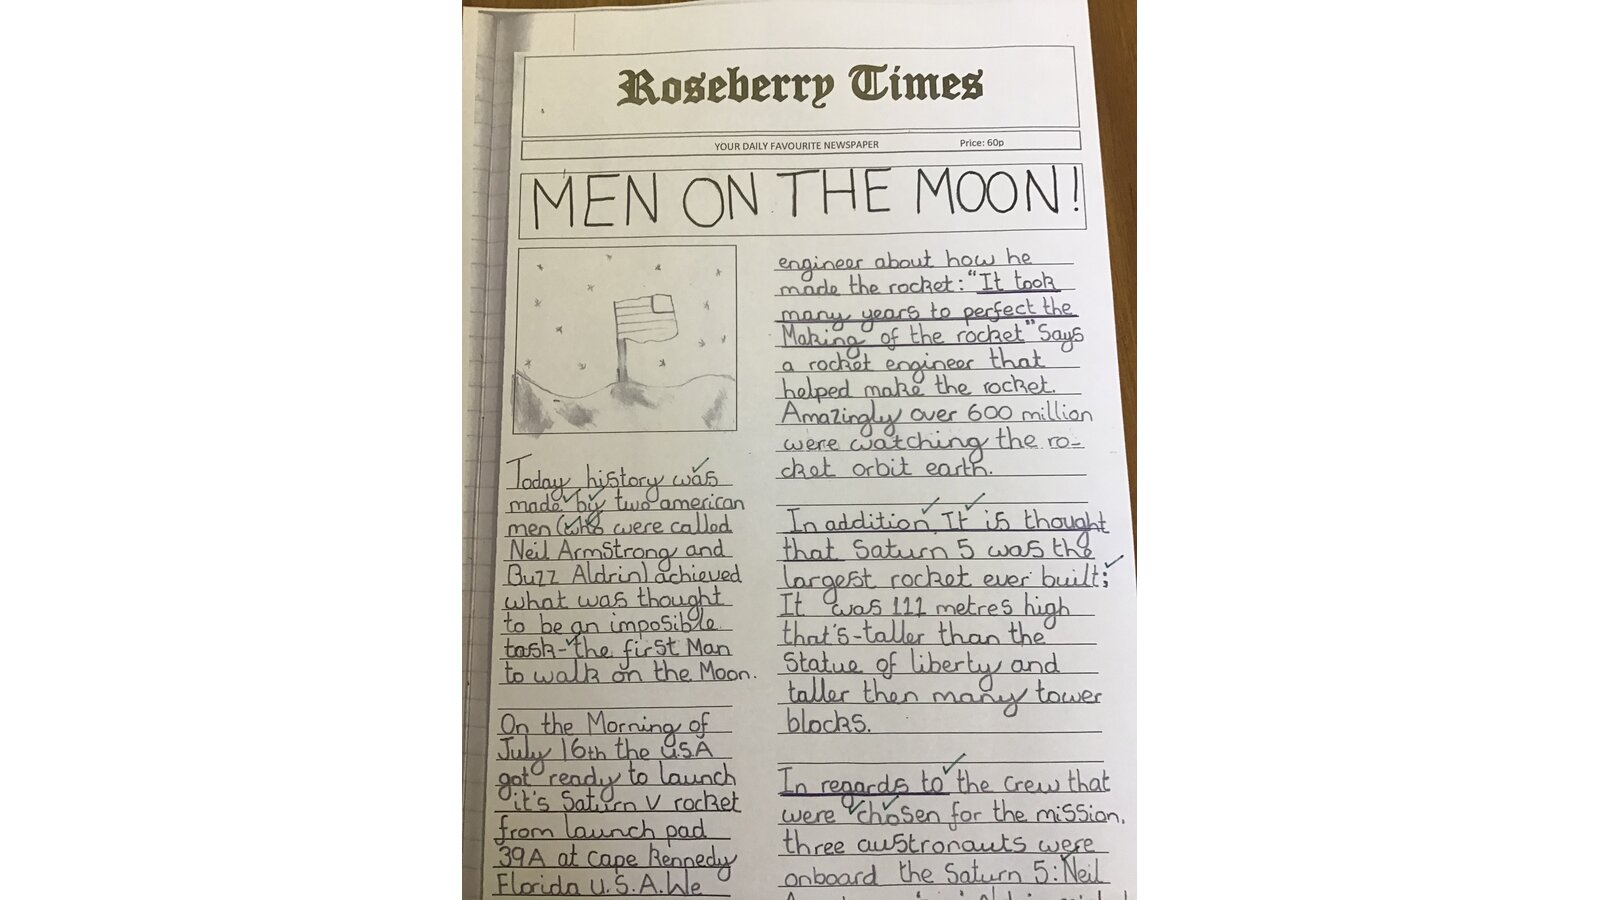 Roseberry Times
YOUR DAILY FAVOURITE NEWSPAPER Price: 60p
MEN ON THE MOON!
Today history was
made by two american
men (who were called
Neil Armstrong and
Buzz Aldrin) achieved
what was thought
to be an imposible
task-the first Man
to walk on the Moon.
On the Morning of
July 16th the U.S.A
got ready to launch
it's Saturn V rocket
from launch pad
39A at Cape Kennedy
Florida U.S.A. We
engineer about how he
made the rocket: "It took
many years to perfect the
Making of the rocket" Says
a rocket engineer that
helped make the rocket.
Amazingly over 600 million
were watching the ro-
cket orbit earth.
In addition, It is thought
that Saturn 5 was the
largest rocket ever built;
It was 111 metres high
that's-taller than the
Statue of liberty and
taller then many tower
blocks.
In regards to the crew that
were chosen for the mission,
three austronauts were
onboard the Saturn 5: Neil